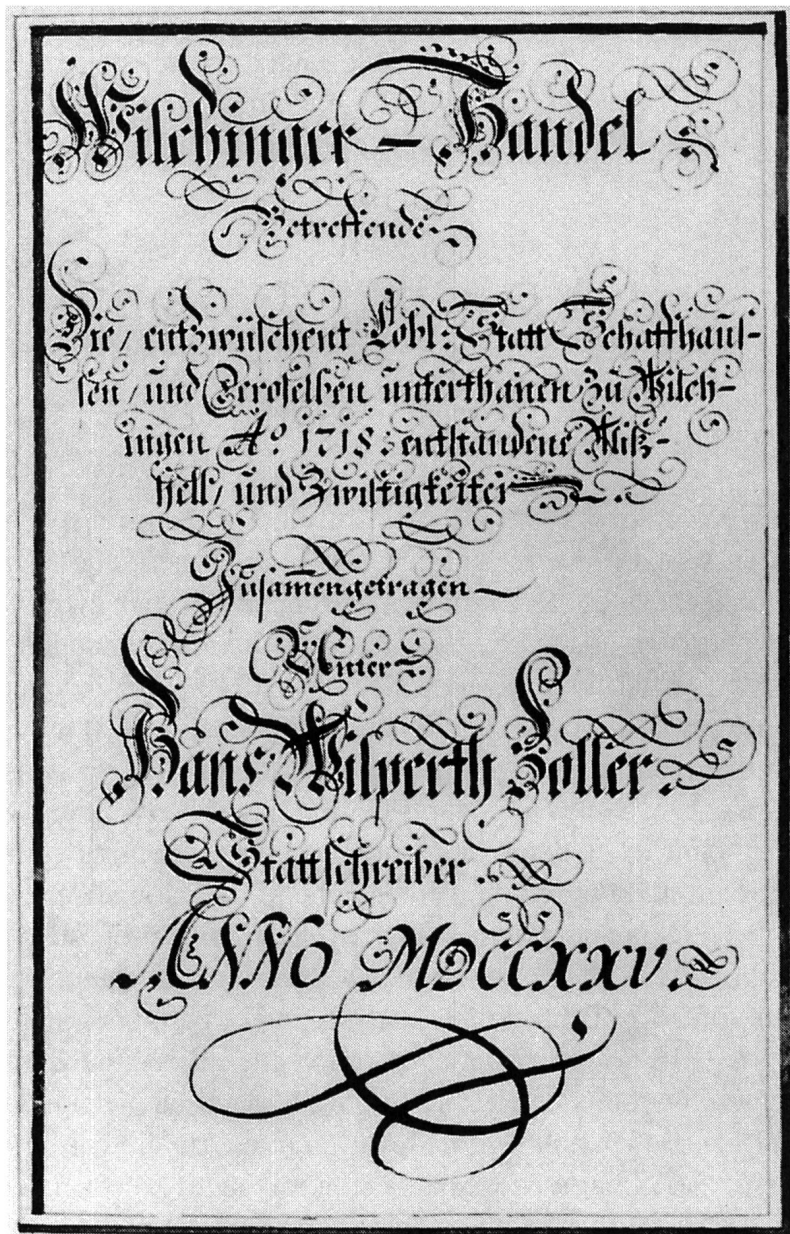 Wilchinger - Handel
Betreffende
Die / entzwüschent Lobl: Statt Schaffhauſ-
ſen / und Deroſelben unterthanen zu Wilch-
ingen Aº 1718 : entſtandene Miß-
hell / und Zwiſtigkeiten
Zuſamengetragen
Unter
Hans Wilperth Zoller.
Stattſchreiber.
ANNO MDCCXXV.